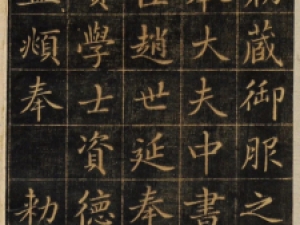 藏御服之
大夫中書
臣趙世延奉
學士資德
孟頫奉勅